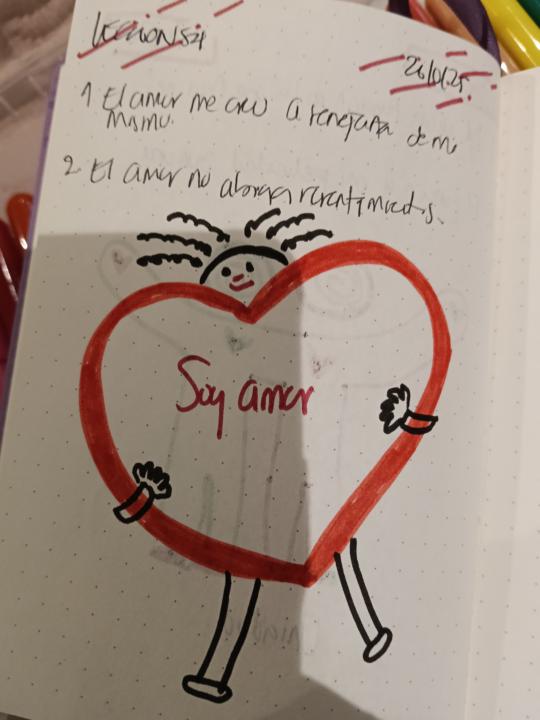 LECCION 84
26/01/25
1 El amor me creo a semejanza de mi
mismo.
2. El amor no abriga resentimientos.
Soy amor